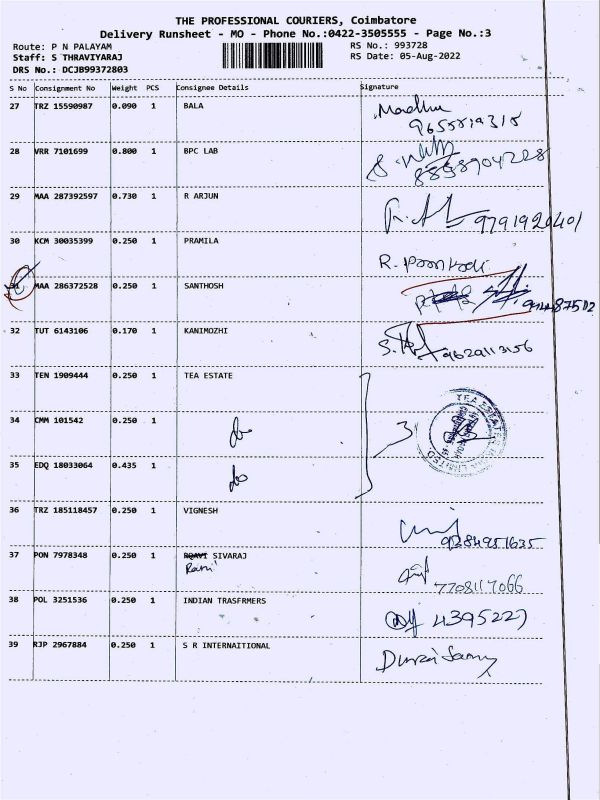 THE PROFESSIONAL COURIERS, Coimbatore
Delivery Runsheet - MO - Phone No.:0422-3505555 - Page No.:3
Route: P N PALAYAM
RS No.: 993728
Staff: S THRAVIYARAJ
RS Date: 05-Aug-2022
DRS No.: DCJB99372803
S No Consignment No Weight PCS Consignee Details Signature
27 TRZ 15590987 0.090 1 BALA Madhu
28 VRR 7101699 0.800 1 BPC LAB
29 MAA 287392597 0.730 1 R ARJUN
30 KCM 30035399 0.250 1 PRAMILA
31 MAA 286372528 0.250 1 SANTHOSH
32 TUT 6143106 0.170 1 KANIMOZHI
9629113156
33 TEN 1909444 0.250 1 TEA ESTATE
34 CMM 101542 0.250 1 do
3
35 EDQ 18033064 0.435 1 do
36 TRZ 185118457 0.250 1 VIGNESH
9284951635
37 PON 7978348 0.250 1 SIVARAJ
Rani
7708117066
38 POL 3251536 0.250 1 INDIAN TRASFRMERS 4395227
39 RJP 2967884 0.250 1 S R INTERNAITIONAL
Durai Samy